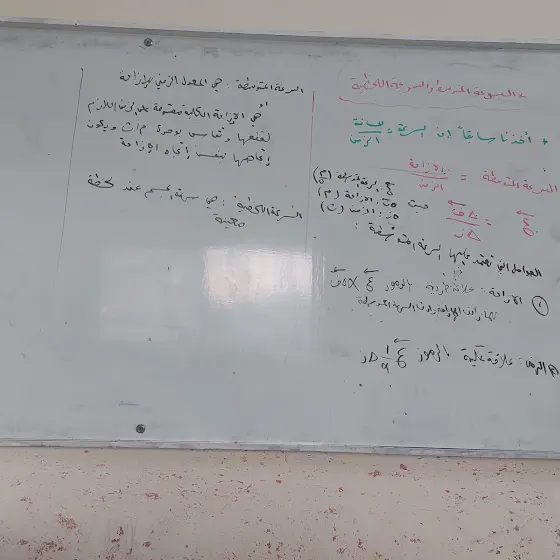 * السرعة المتوسطة والسرعة اللحظية
* أخذنا سابقاً إن السرعة = المسافة / الزمن
السرعة المتوسطة = الإزاحة / الزمن
ع = Δف / Δز حيث ع: السرعة المتوسطة (م/ث)
Δف: الإزاحة (م)
Δز: الزمن (ث)
العوامل التي تعتمد عليها السرعة المتوسطة:
① الإزاحة: علاقة طردية بالرموز ع α Δف
الإزاحة زادت السرعة المتوسطة
② الزمن: علاقة عكسية بالرموز ع α 1/Δز
السرعة المتوسطة: هي المعدل الزمني للإزاحة
أو هي الإزاحة الكلية مقسومة على الزمن اللازم
لقطعها وتقاس بوحدة م/ث ويكون
إتجاهها بنفس إتجاه الإزاحة
السرعة اللحظية: هي سرعة الجسم عند لحظة
معينة